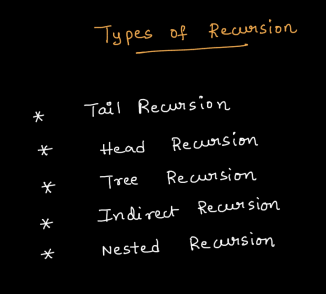 Types of Recursion
* Tail Recursion
* Head Recursion
* Tree Recursion
* Indirect Recursion
* Nested Recursion